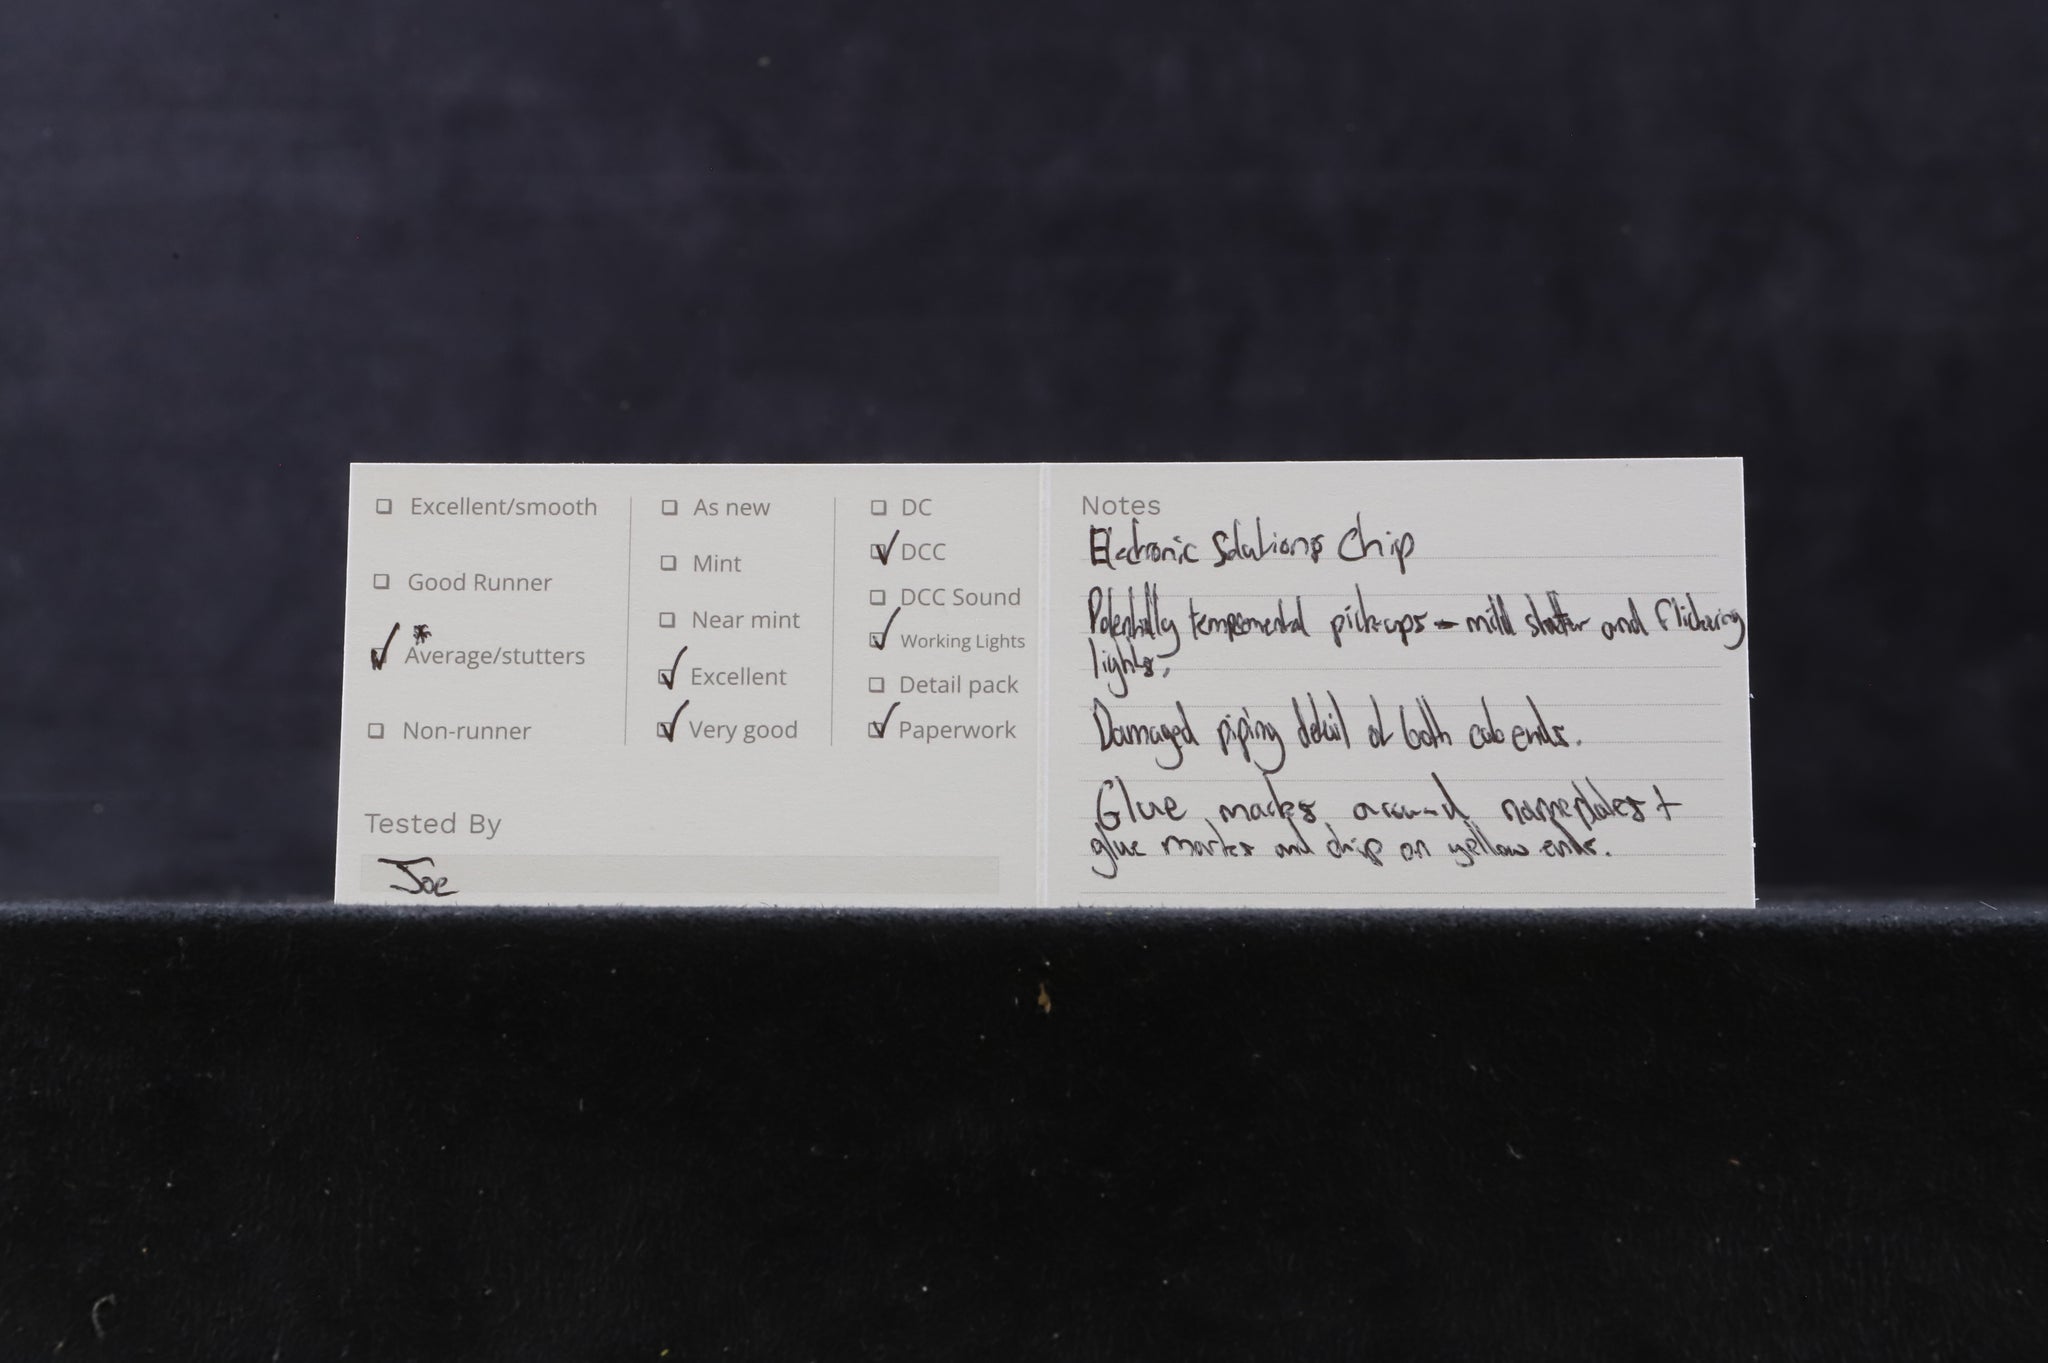 Excellent/smooth
Good Runner
*
Average/stutters
Non-runner
As new
Mint
Near mint
Excellent
Very good
DC
DCC
DCC Sound
Working Lights
Detail pack
Paperwork
Tested By
Joe
Notes
Electronic Solutions Chip
Potentially pick-ups - mild stutter and flickering
lights.
Damaged piping detail at both cab ends.
Glue marks around nameplates +
glue marks and chip on yellow ends.